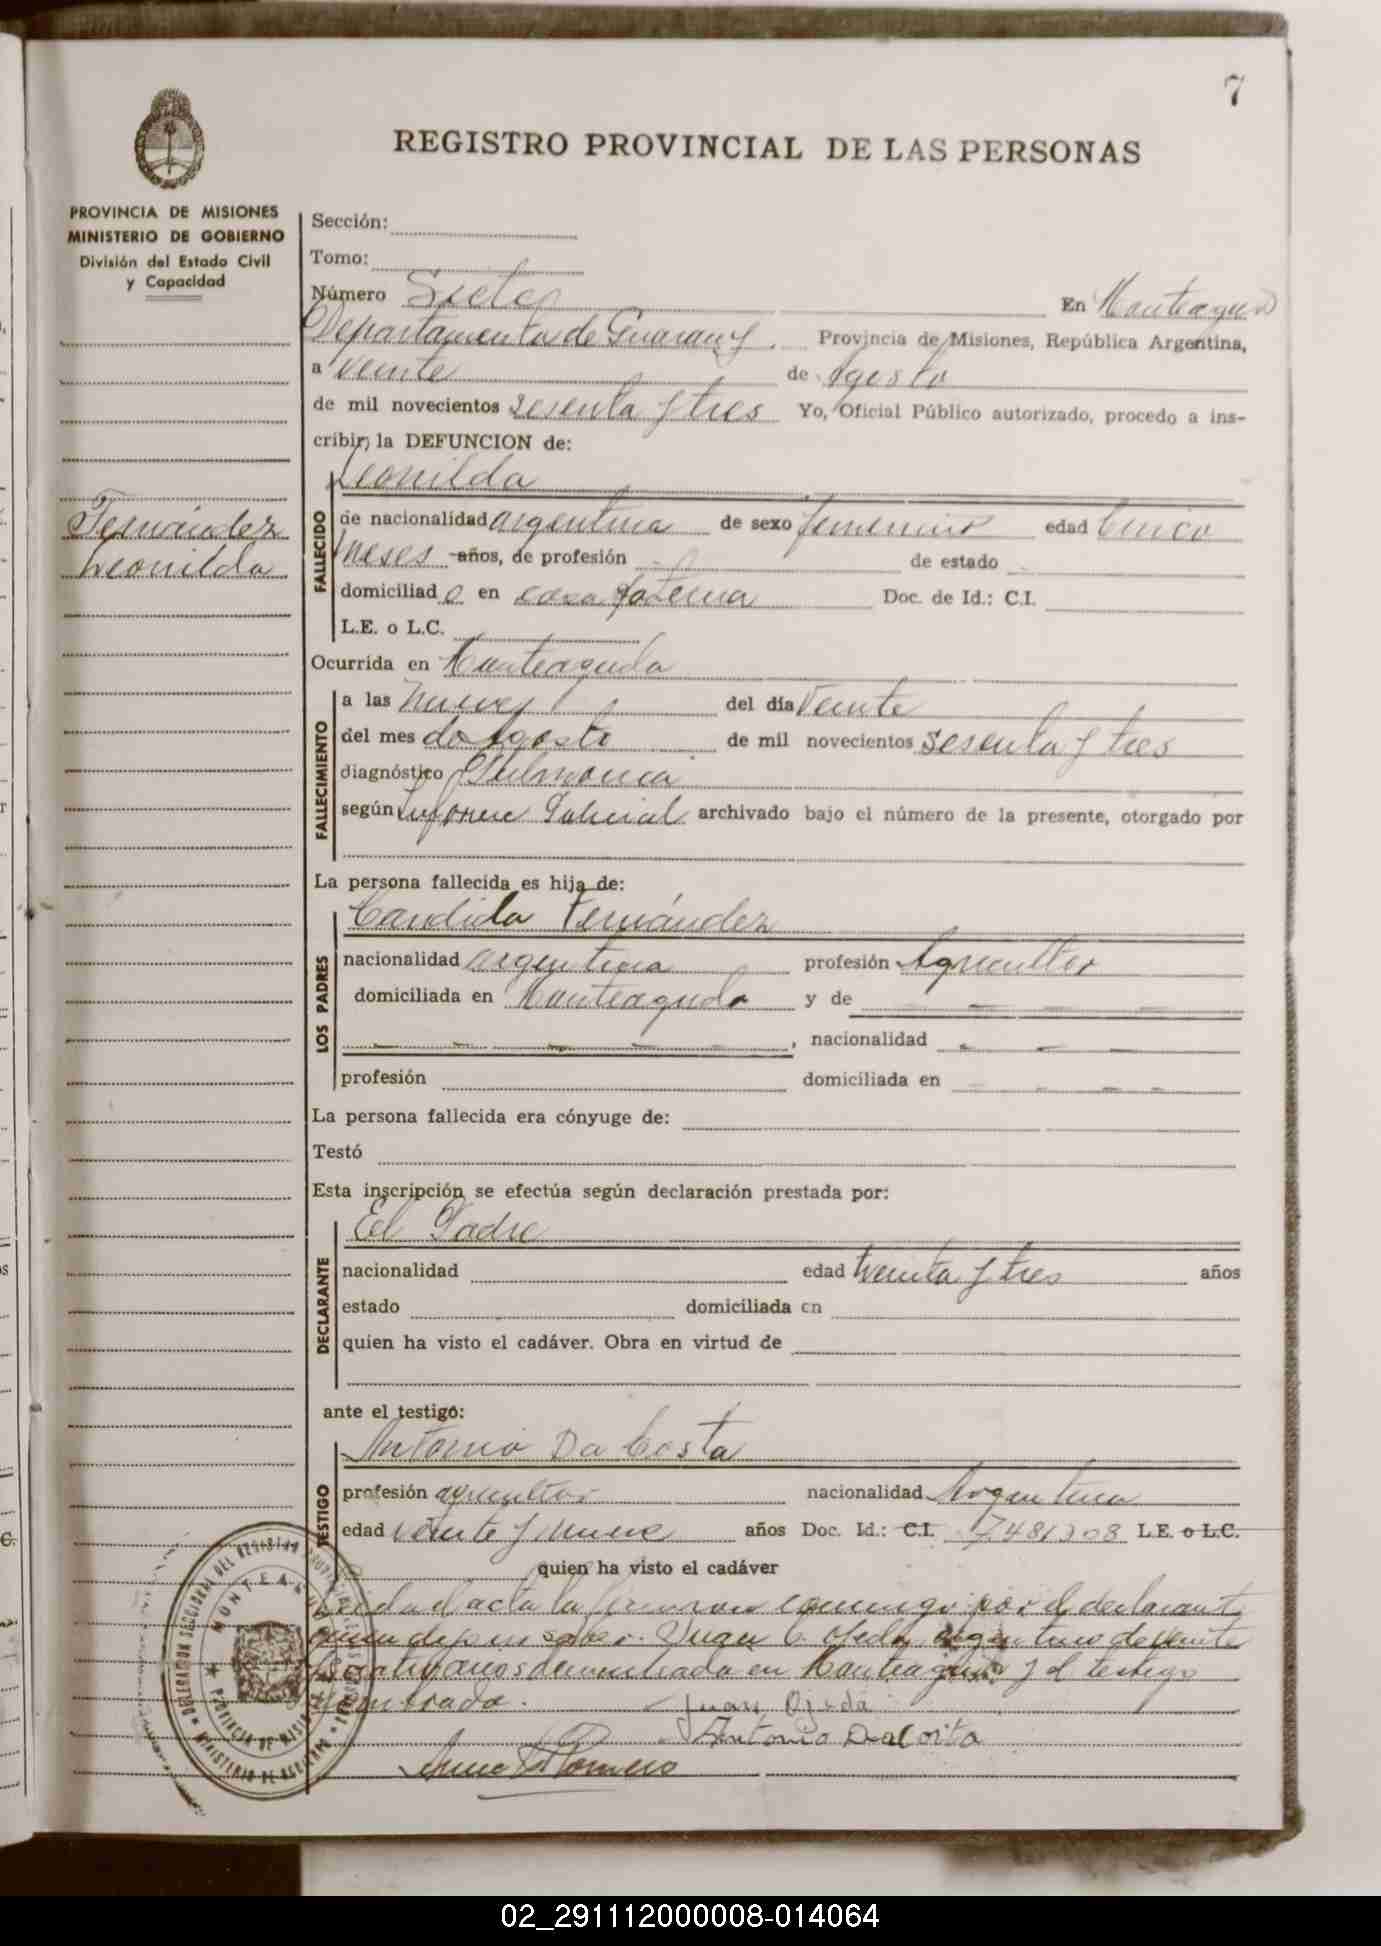 7
REGISTRO PROVINCIAL DE LAS PERSONAS
PROVINCIA DE MISIONES
MINISTERIO DE GOBIERNO
División del Estado Civil
y Capacidad
Fernández
Leonilda
Sección:
Tomo:
Número Siete En Monteagudo
Departamento de Guaraný. Provincia de Misiones, República Argentina,
a veinte de Agosto
de mil novecientos sesenta y tres Yo, Oficial Público autorizado, procedo a ins-
cribir, la DEFUNCION de:
Leonilda
FALLECIDO
de nacionalidad argentina de sexo femenino edad Cinco
meses años, de profesión de estado
domiciliad a en casa paterna Doc. de Id.: C.I.
L.E. o L.C.
Ocurrida en Monteagudo
FALLECIMIENTO
a las nueve del día veinte
del mes de Agosto de mil novecientos sesenta y tres
diagnóstico Pulmonia
según Informe Policial archivado bajo el número de la presente, otorgado por
La persona fallecida es hija de:
LOS PADRES
Candida Fernández
nacionalidad argentina profesión Agricultor
domiciliada en Monteagudo y de
nacionalidad
profesión domiciliada en
La persona fallecida era cónyuge de:
Testó
Esta inscripción se efectúa según declaración prestada por:
DECLARANTE
El Padre
nacionalidad edad treinta y tres años
estado domiciliada en
quien ha visto el cadáver. Obra en virtud de
ante el testigo:
TESTIGO
Antonio Da Costa
profesión agricultor nacionalidad Argentina
edad veinte y nueve años Doc. Id.: C.I. 7481208 L.E. o L.C.
quien ha visto el cadáver
Leida el acta la firmaron conmigo por el declarante
quien dijo no saber. Juan C. Ojeda, argentino de veinte
años domiciliado en Monteagudo y el testigo
nombrado. Juan Ojeda
Antonio Dacosta
Romero
DELEGACION SECCIONAL DEL REGISTRO
MONTEAG
PROVINCIA DE MISIONES
02_291112000008-014064